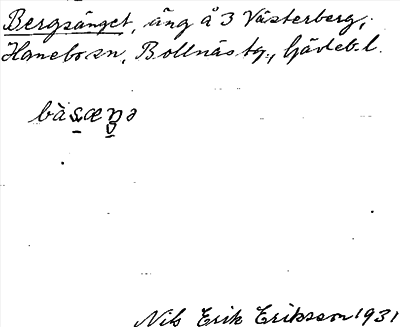 Bergsänget, äng å 3 Västerberg,
Hanebo sn, Bollnäs tg., Gävleb. l.
bàsæŋə
Nils Erik Eriksson 1931